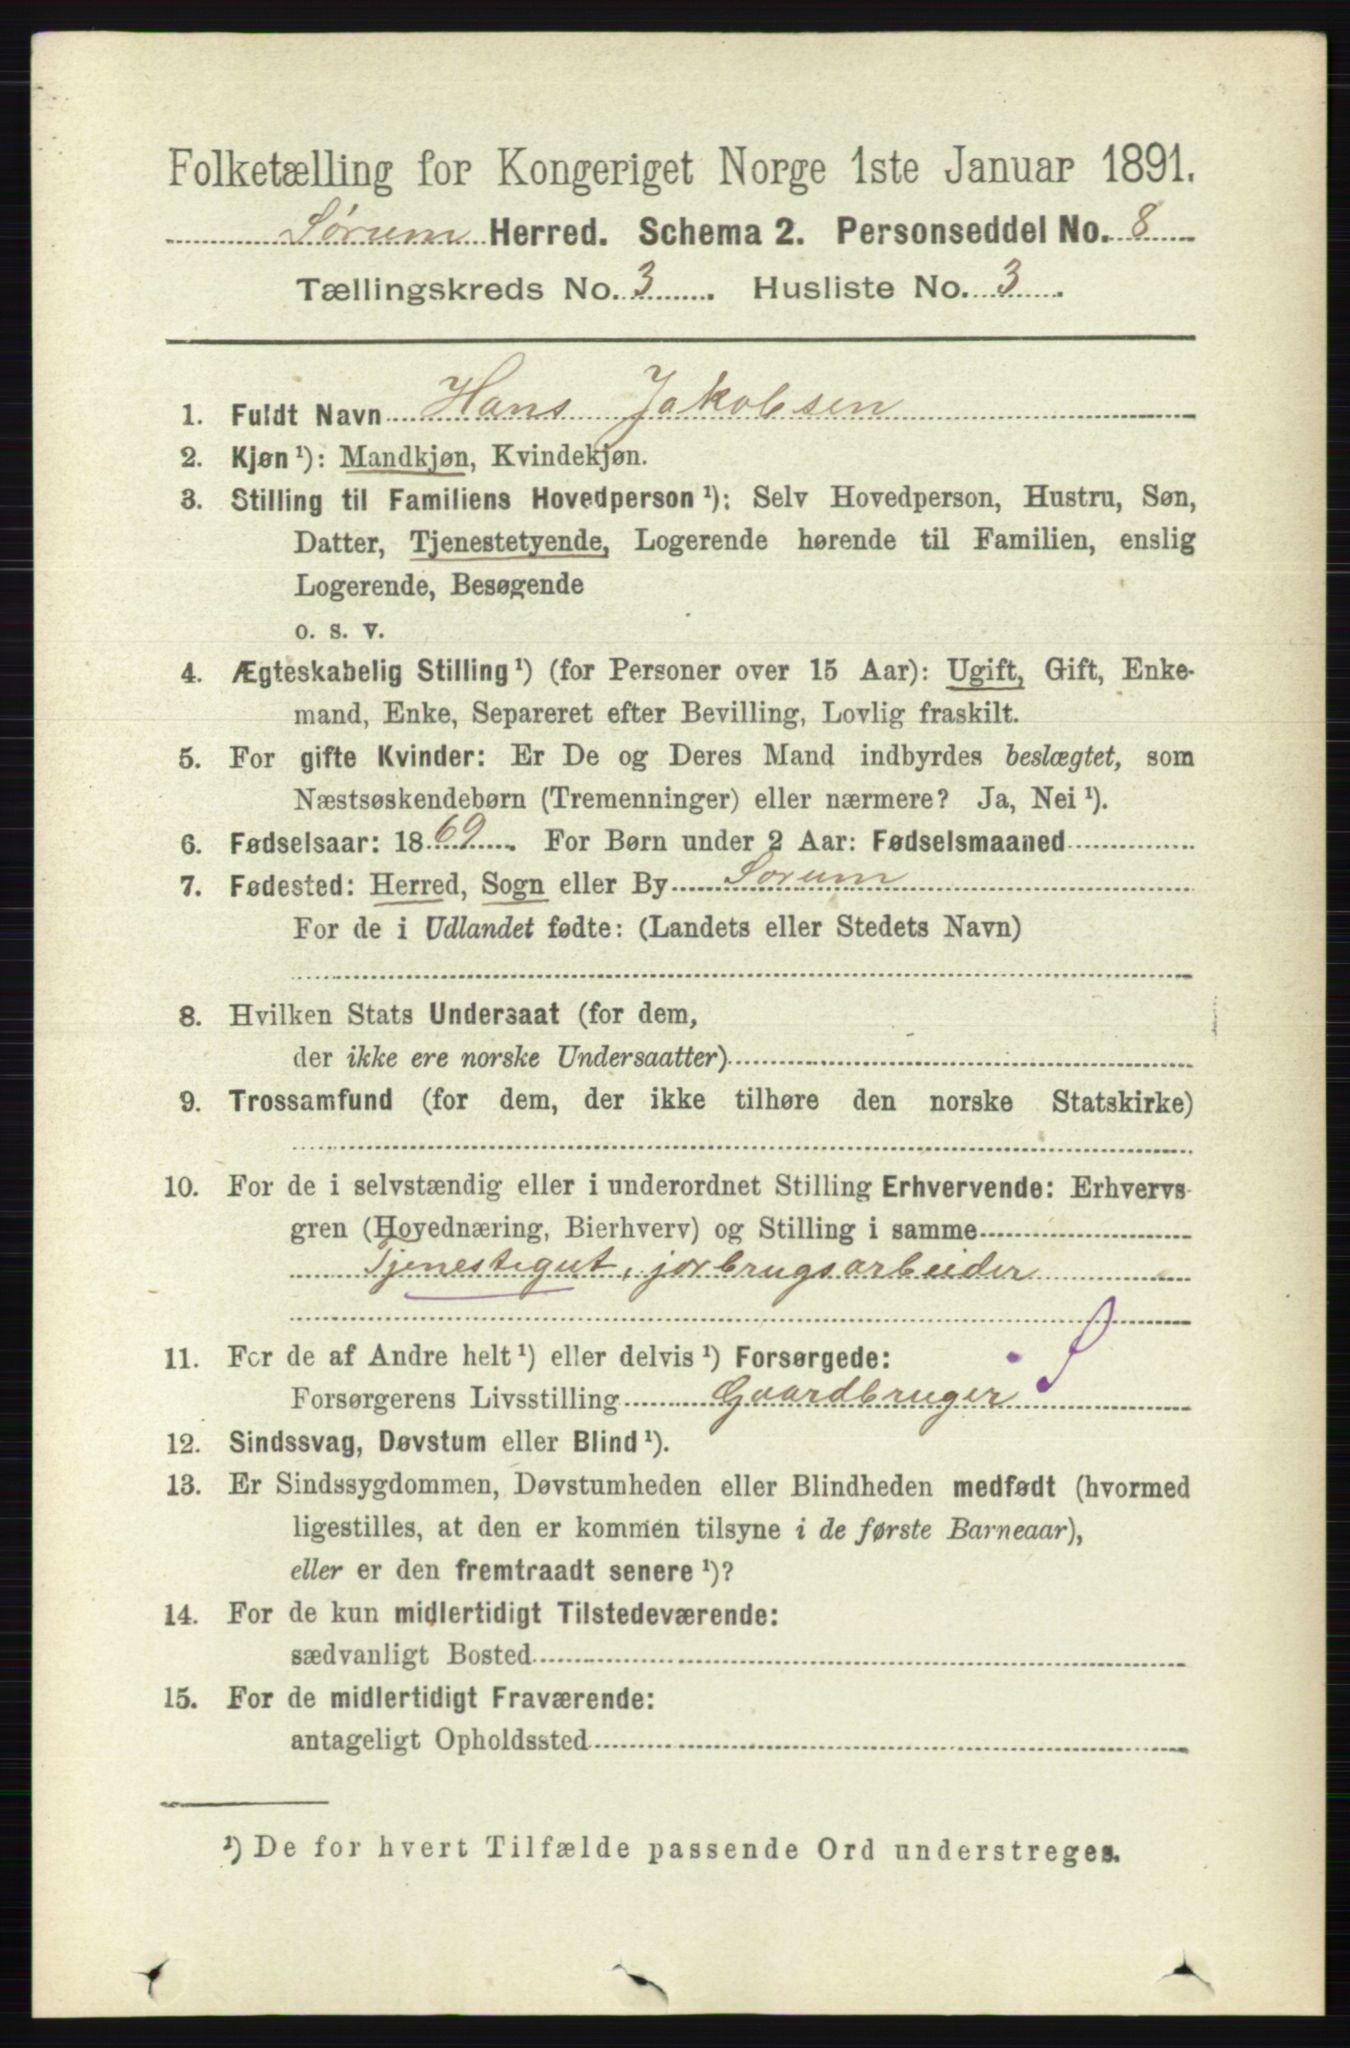 Folketælling for Kongeriget Norge 1ste Januar 1891.
Sørum Herred. Schema 2. Personseddel No. 8
Tællingskreds No. 3. Husliste No. 3.
1. Fuldt Navn Hans Jakobsen
2. Kjøn¹): Mandkjøn, Kvindekjøn.
3. Stilling til Familiens Hovedperson¹): Selv Hovedperson, Hustru, Søn,
Datter, Tjenestetyende, Logerende hørende til Familien, enslig
Logerende, Besøgende
o. s. v.
4. Ægteskabelig Stilling¹) (for Personer over 15 Aar): Ugift, Gift, Enke-
mand, Enke, Separeret efter Bevilling, Lovlig fraskilt.
5. For gifte Kvinder: Er De og Deres Mand indbyrdes beslægtet, som
Næstsøskendebørn (Tremenninger) eller nærmere? Ja, Nei¹).
6. Fødselsaar: 1869. For Børn under 2 Aar: Fødselsmaaned
7. Fødested: Herred, Sogn eller By Sorum
For de i Udlandet fødte: (Landets eller Stedets Navn)
8. Hvilken Stats Undersaat (for dem,
der ikke ere norske Undersaatter)
9. Trossamfund (for dem, der ikke tilhøre den norske Statskirke)
10. For de i selvstændig eller i underordnet Stilling Erhvervende: Erhvervs-
gren (Hovednæring, Bierhverv) og Stilling i samme
Tjenestegut, jorbrugsarbeider
11. For de af Andre helt¹) eller delvis¹) Forsørgede:
Forsørgerens Livsstilling Gaardbruger
12. Sindssvag, Døvstum eller Blind¹).
13. Er Sindssygdommen, Døvstumheden eller Blindheden medfødt (hvormed
ligestilles, at den er kommen tilsyne i de første Barneaar),
eller er den fremtraadt senere¹)?
14. For de kun midlertidigt Tilstedeværende:
sædvanligt Bosted
15. For de midlertidigt Fraværende:
antageligt Opholdssted
¹) De for hvert Tilfælde passende Ord understreges.